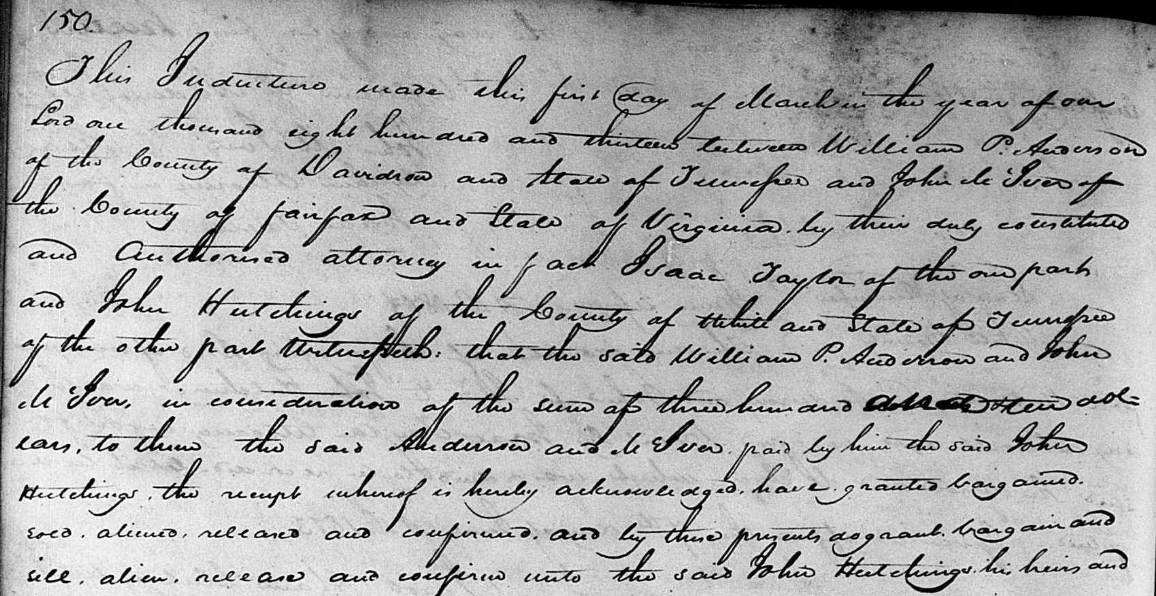 150.
This Indenture made this first day of March in the year of our
Lord one thousand eight hundred and thirteen between William P. Anderson
of the County of Davidson and State of Tennessee and John McIver of
the County of Fairfax and State of Virginia by their duly constituted
and Authorised attorney in fact Isaac Taylor of the one part
and John Hutchings of the County of White and State of Tennessee
of the other part Witnesseth: that the said William P. Anderson and John
McIver, in consideration of the sum of three hundred ten dol=
lars, to them the said Anderson and McIver paid by him the said John
Hutchings, the receipt whereof is hereby acknowledged, have granted bargained.
sold, aliened, released and confirmed, and by these presents do grant, bargain and
sell, alien, release and confirm unto the said John Hutchings, his heirs and